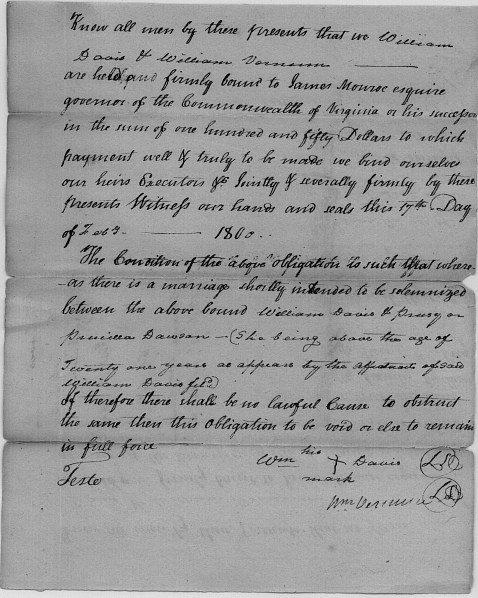 Know all men by these presents that we William
Davis & William Vernum
are held and firmly bound to James Monroe esquire
governor of the Commonwealth of Virginia or his successor
in the sum of one hundred and fifty Dollars to which
payment well & truly to be made we bind ourselves
our heirs Executors &c Jointly & severally firmly by these
presents Witness our hands and seals this 17th Day
of Feby 1800
The Condition of the above obligation is such that where-
-as there is a marriage shortly intended to be solemnized
between the above bound William Davis & or
Priscilla Dawson - (She being above the age of
Twenty one years as appears by the affidavit of said
William Davis fild)
If therefore there shall be no lawful Cause to obstruct
the same then this obligation to be void or else to remain
in full force
Teste
Wm his + mark Davis
Wm